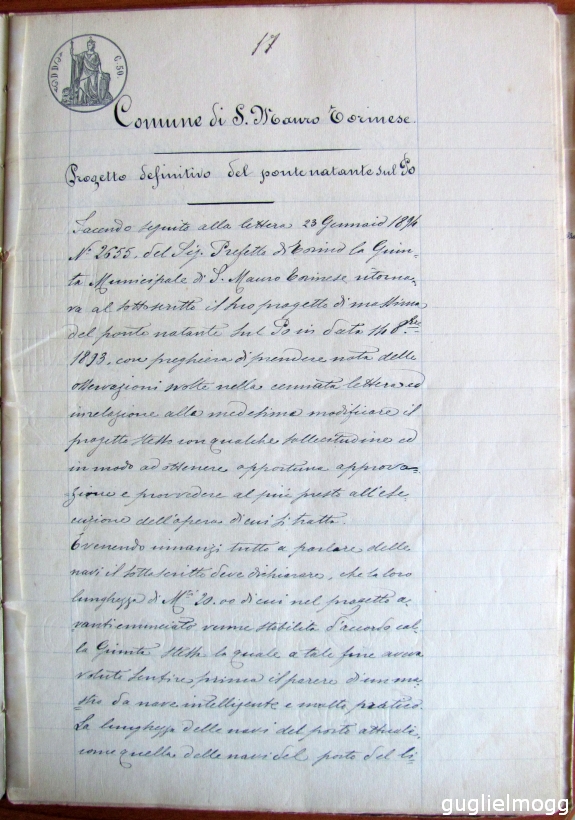 17
C. 50.
Comune di S. Mauro Torinese.
Progetto definitivo del ponte natante sul Po
Facendo seguito alla lettera 23 Gennaio 1894
N° 2655. del Sig. Prefetto di Torino la Giun-
ta Municipale di S. Mauro Torinese ritorna-
va al sottoscritto il suo progetto di massima
del ponte natante sul Po in data 14 8bre
1893, con preghiera di prendere nota delle
osservazioni svolte nella cennata lettera ed
in relazione alla medesima modificare il
progetto stesso con qualche sollecitudine ed
in modo ad ottenere opportuna approva-
zione e provvedere al più presto all'ese-
cuzione dell'opera di cui si tratta.
E venendo innanzi tutto a parlare delle
navi il sottoscritto deve dichiarare, che la loro
lunghezza di M. 20.00 di cui nel progetto a-
vanti enunciato venne stabilita d'accordo col-
la Giunta stessa la quale a tale fine aveva
voluto sentire prima il parere d'un ma-
stro da nave intelligente e molto pratico.
La lunghezza delle navi del porto attuale,
come quella delle navi del porto del li-
guglielmogg